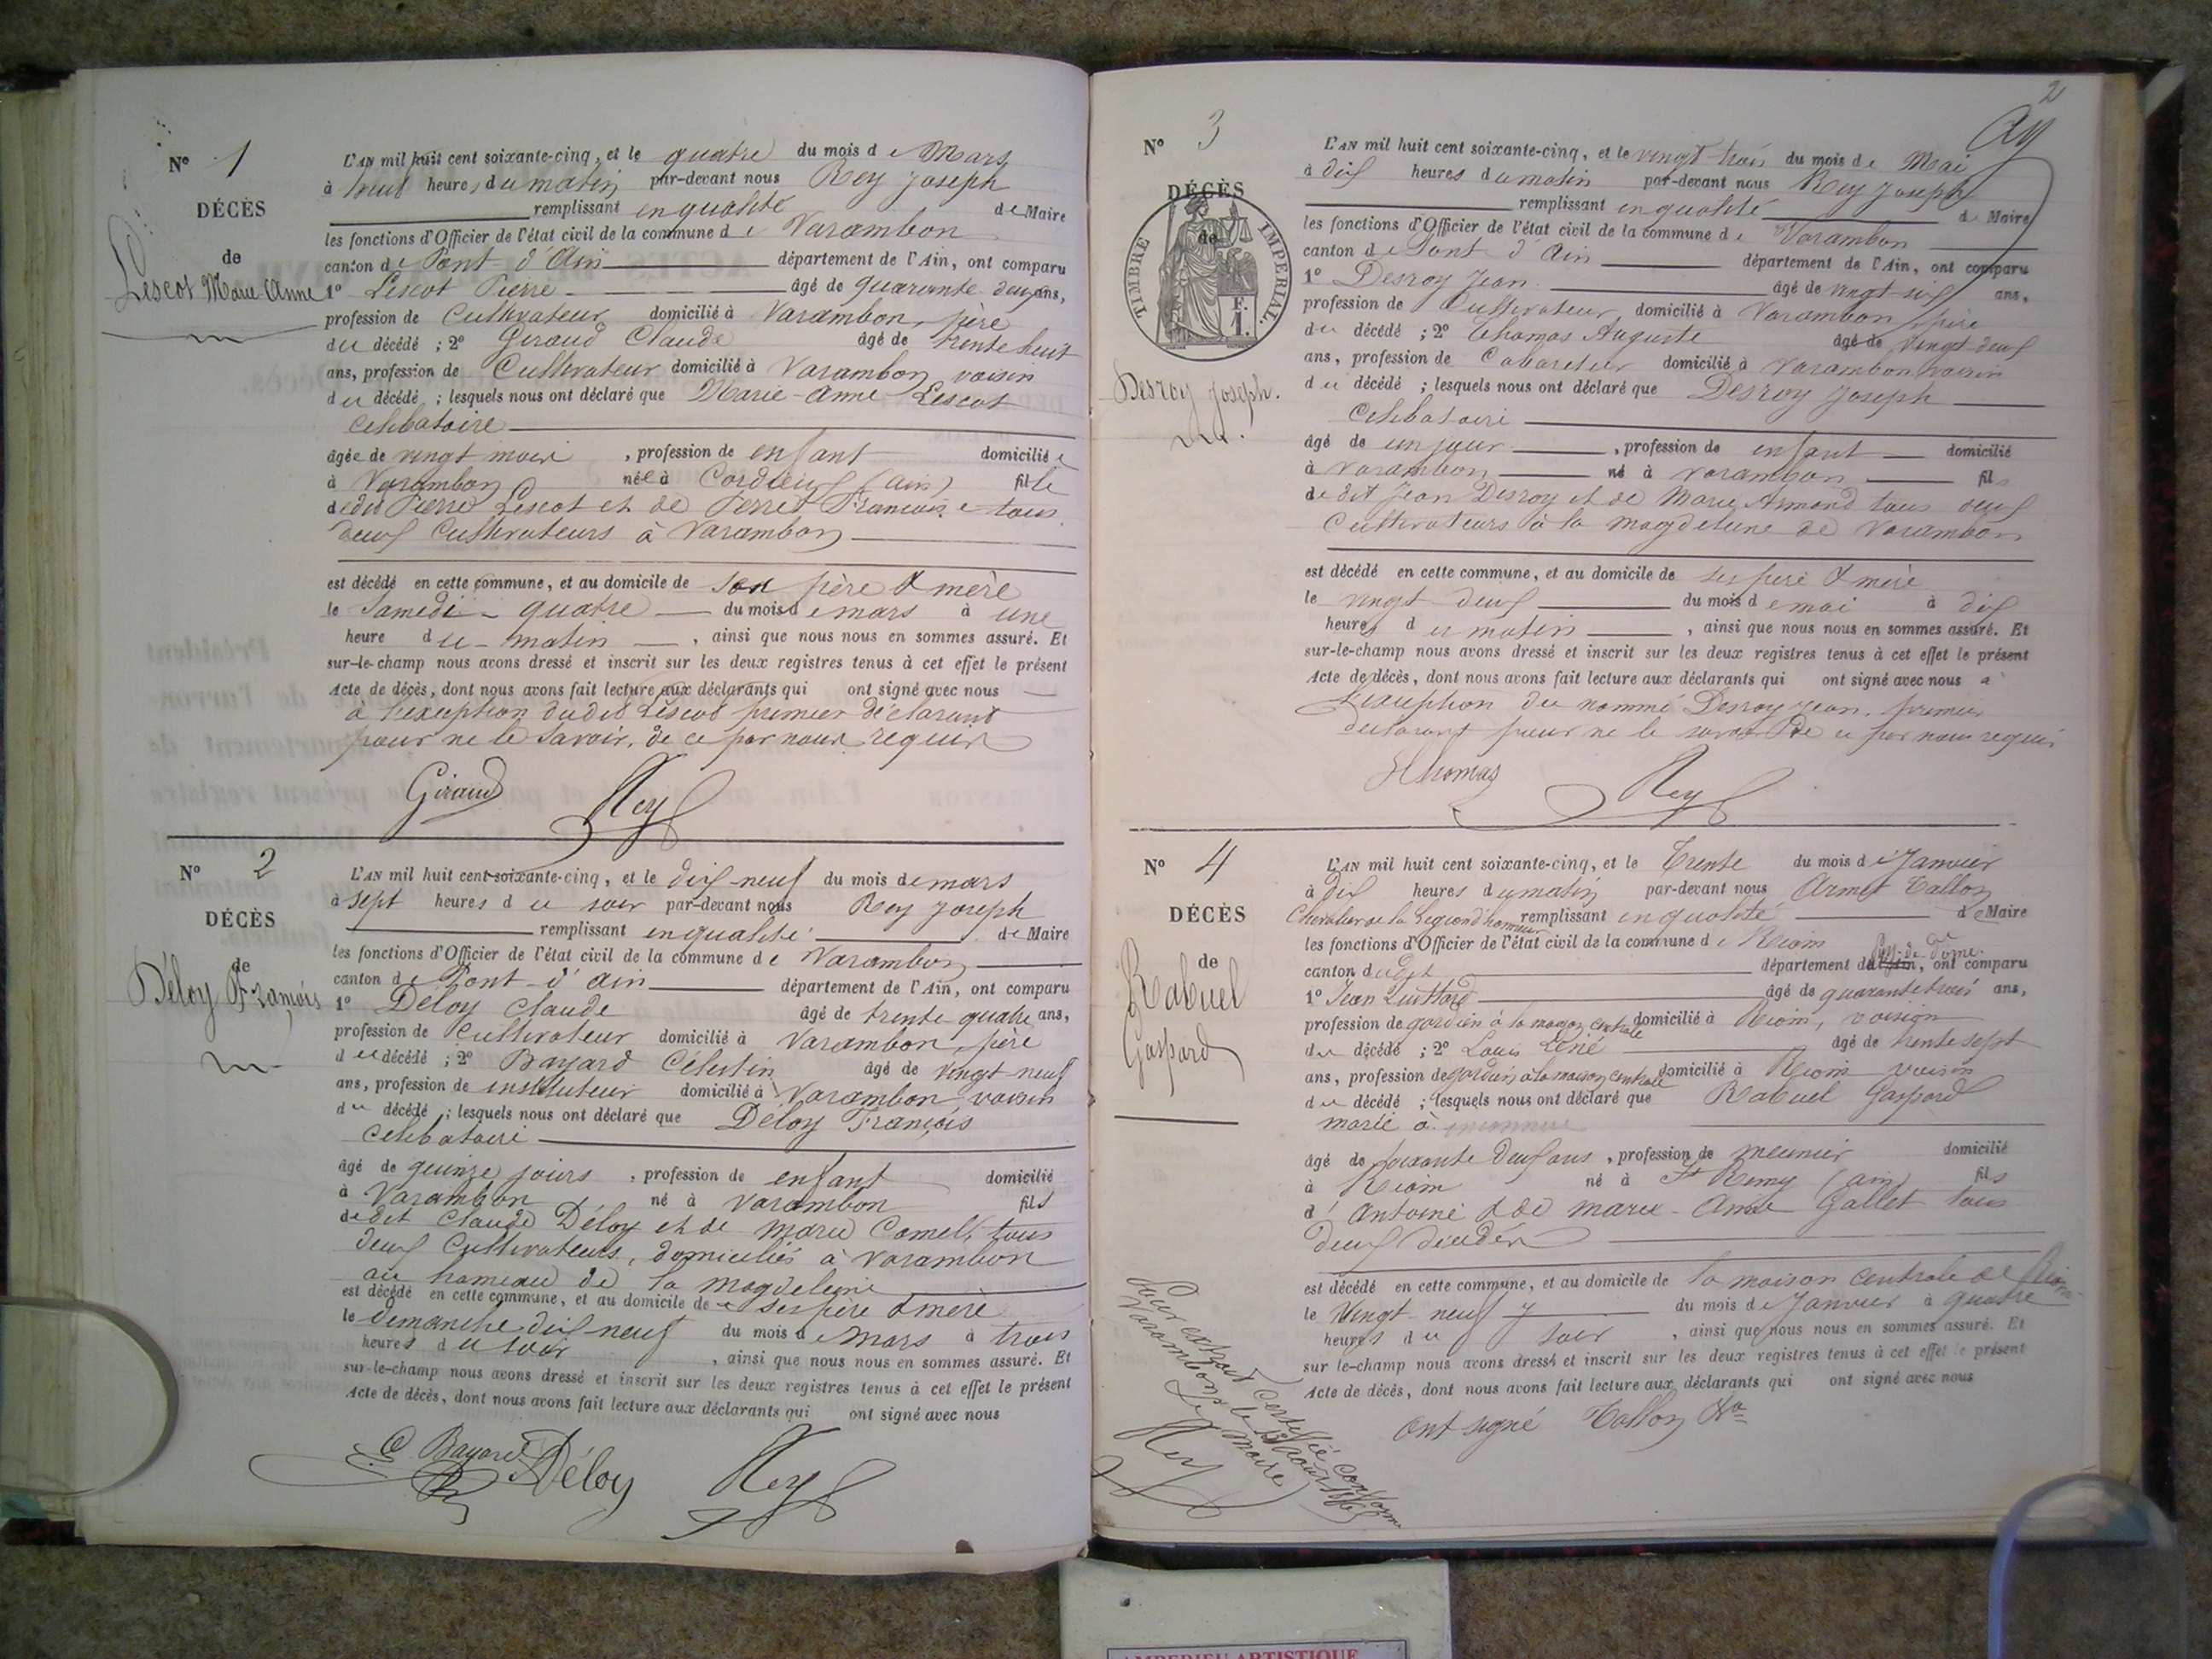 N° 1
DÉCÈS
de
Lescot Marie Anne
L'AN mil huit cent soixante-cinq, et le quatre du mois de Mars
à huit heures du matin par-devant nous Rey Joseph
remplissant en qualité de Maire
les fonctions d'Officier de l'état civil de la commune de Varambon
canton de Pont d'Ain département de l'Ain, ont comparu
1° Lescot Pierre âgé de quarante deux ans,
profession de Cultivateur domicilié à Varambon, père
du décédé ; 2° Giraud Claude âgé de trente huit
ans, profession de Cultivateur domicilié à Varambon voisin
du décédé ; lesquels nous ont déclaré que Marie-Anne Lescot
Celibataire
âgée de vingt mois, profession de enfant domiciliée
à Varambon née à Cordieux (ain) fille
de dit Pierre Lescot et de Perret Françoise tous
deux Cultivateurs à Varambon
est décédé en cette commune, et au domicile de son père & mère
le Samedi quatre du mois de mars à une
heure du matin, ainsi que nous nous en sommes assuré. Et
sur-le-champ nous avons dressé et inscrit sur les deux registres tenus à cet effet le présent
Acte de décès, dont nous avons fait lecture aux déclarants qui ont signé avec nous
à l'exception dudit Lescot premier déclarant
pour ne le savoir, de ce par nous requis
Giraud Rey
N° 2
DÉCÈS
de
Déloy François
L'AN mil huit cent soixante-cinq, et le dix neuf du mois de mars
à sept heures du soir par-devant nous Rey Joseph
remplissant en qualité de Maire
les fonctions d'Officier de l'état civil de la commune de Varambon
canton de Pont d'ain département de l'Ain, ont comparu
1° Déloy Claude âgé de trente quatre ans,
profession de Cultivateur domicilié à Varambon, père
du décédé ; 2° Bayard Célestin âgé de vingt neuf
ans, profession de instituteur domicilié à Varambon, voisin
du décédé ; lesquels nous ont déclaré que Déloy François
Celibataire
âgé de quinze jours, profession de enfant domicilié
à Varambon né à Varambon fils
de dit Claude Déloy et de Marie Comel, tous
deux Cultivateurs, domiciliés à Varambon
au hameau de la Magdeleine
est décédé en cette commune, et au domicile de ses père & mère
le Dimanche dix neuf du mois de Mars à trois
heures du soir, ainsi que nous nous en sommes assuré. Et
sur-le-champ nous avons dressé et inscrit sur les deux registres tenus à cet effet le présent
Acte de décès, dont nous avons fait lecture aux déclarants qui ont signé avec nous
C Bayard Déloy Rey
2
N° 3
DÉCÈS
de
TIMBRE IMPERIAL.
F.
1.
Desroy Joseph.
L'AN mil huit cent soixante-cinq, et le vingt trois du mois de Mai
à dix heures du matin par-devant nous Rey Joseph
remplissant en qualité de Maire
les fonctions d'Officier de l'état civil de la commune de Varambon
canton de Pont d'Ain département de l'Ain, ont comparu
1° Desroy Jean âgé de vingt six ans,
profession de Cultivateur domicilié à Varambon père
du décédé ; 2° Thomas Auguste âgé de vingt deux
ans, profession de Cabaretier domicilié à Varambon voisin
du décédé ; lesquels nous ont déclaré que Desroy Joseph
Celibataire
âgé de un jour, profession de enfant domicilié
à Varambon né à Varambon fils
de dit Jean Desroy et de Marie Armand tous deux
Cultivateurs à la Magdeleine de Varambon
est décédé en cette commune, et au domicile de ses père & mère
le vingt deux du mois de mai à dix
heures du matin, ainsi que nous nous en sommes assuré. Et
sur-le-champ nous avons dressé et inscrit sur les deux registres tenus à cet effet le présent
Acte de décès, dont nous avons fait lecture aux déclarants qui ont signé avec nous à
l'exception du nommé Desroy Jean, premier
déclarant pour ne le savoir de ce par nous requis
Thomas Rey
N° 4
DÉCÈS
de
Rabuel
Gaspard
L'AN mil huit cent soixante-cinq, et le Trente du mois de Janvier
à dix heures du matin par-devant nous Armet Tallon
Chevalier de la Legiond'honneur remplissant en qualité de Maire
les fonctions d'Officier de l'état civil de la commune de Riom
canton dudit département de Puy-de-Dôme, ont comparu
1° Jean Quittard âgé de quarante trois ans,
profession de gardien à la maison centrale domicilié à Riom, voisin
du décédé ; 2° Louis âgé de trente sept
ans, profession de gardien à la maison centrale domicilié à Riom voisin
du décédé ; lesquels nous ont déclaré que Rabuel Gaspard
marié à inconnue
âgé de soixante deux ans, profession de meunier domicilié
à Riom né à St Remy (ain) fils
d'Antoine & de marie-Anne Gallet tous
deux décédés
est décédé en cette commune, et au domicile de la maison centrale de Riom
le Vingt-neuf du mois de Janvier à quatre
heures du soir, ainsi que nous nous en sommes assuré. Et
sur-le-champ nous avons dressé et inscrit sur les deux registres tenus à cet effet le présent
Acte de décès, dont nous avons fait lecture aux déclarants qui ont signé avec nous
Ont signé Tallon
Pour extrait certifié conforme
Varambon le
Le Maire
Rey
AMBERIEU ARTISTIQUE